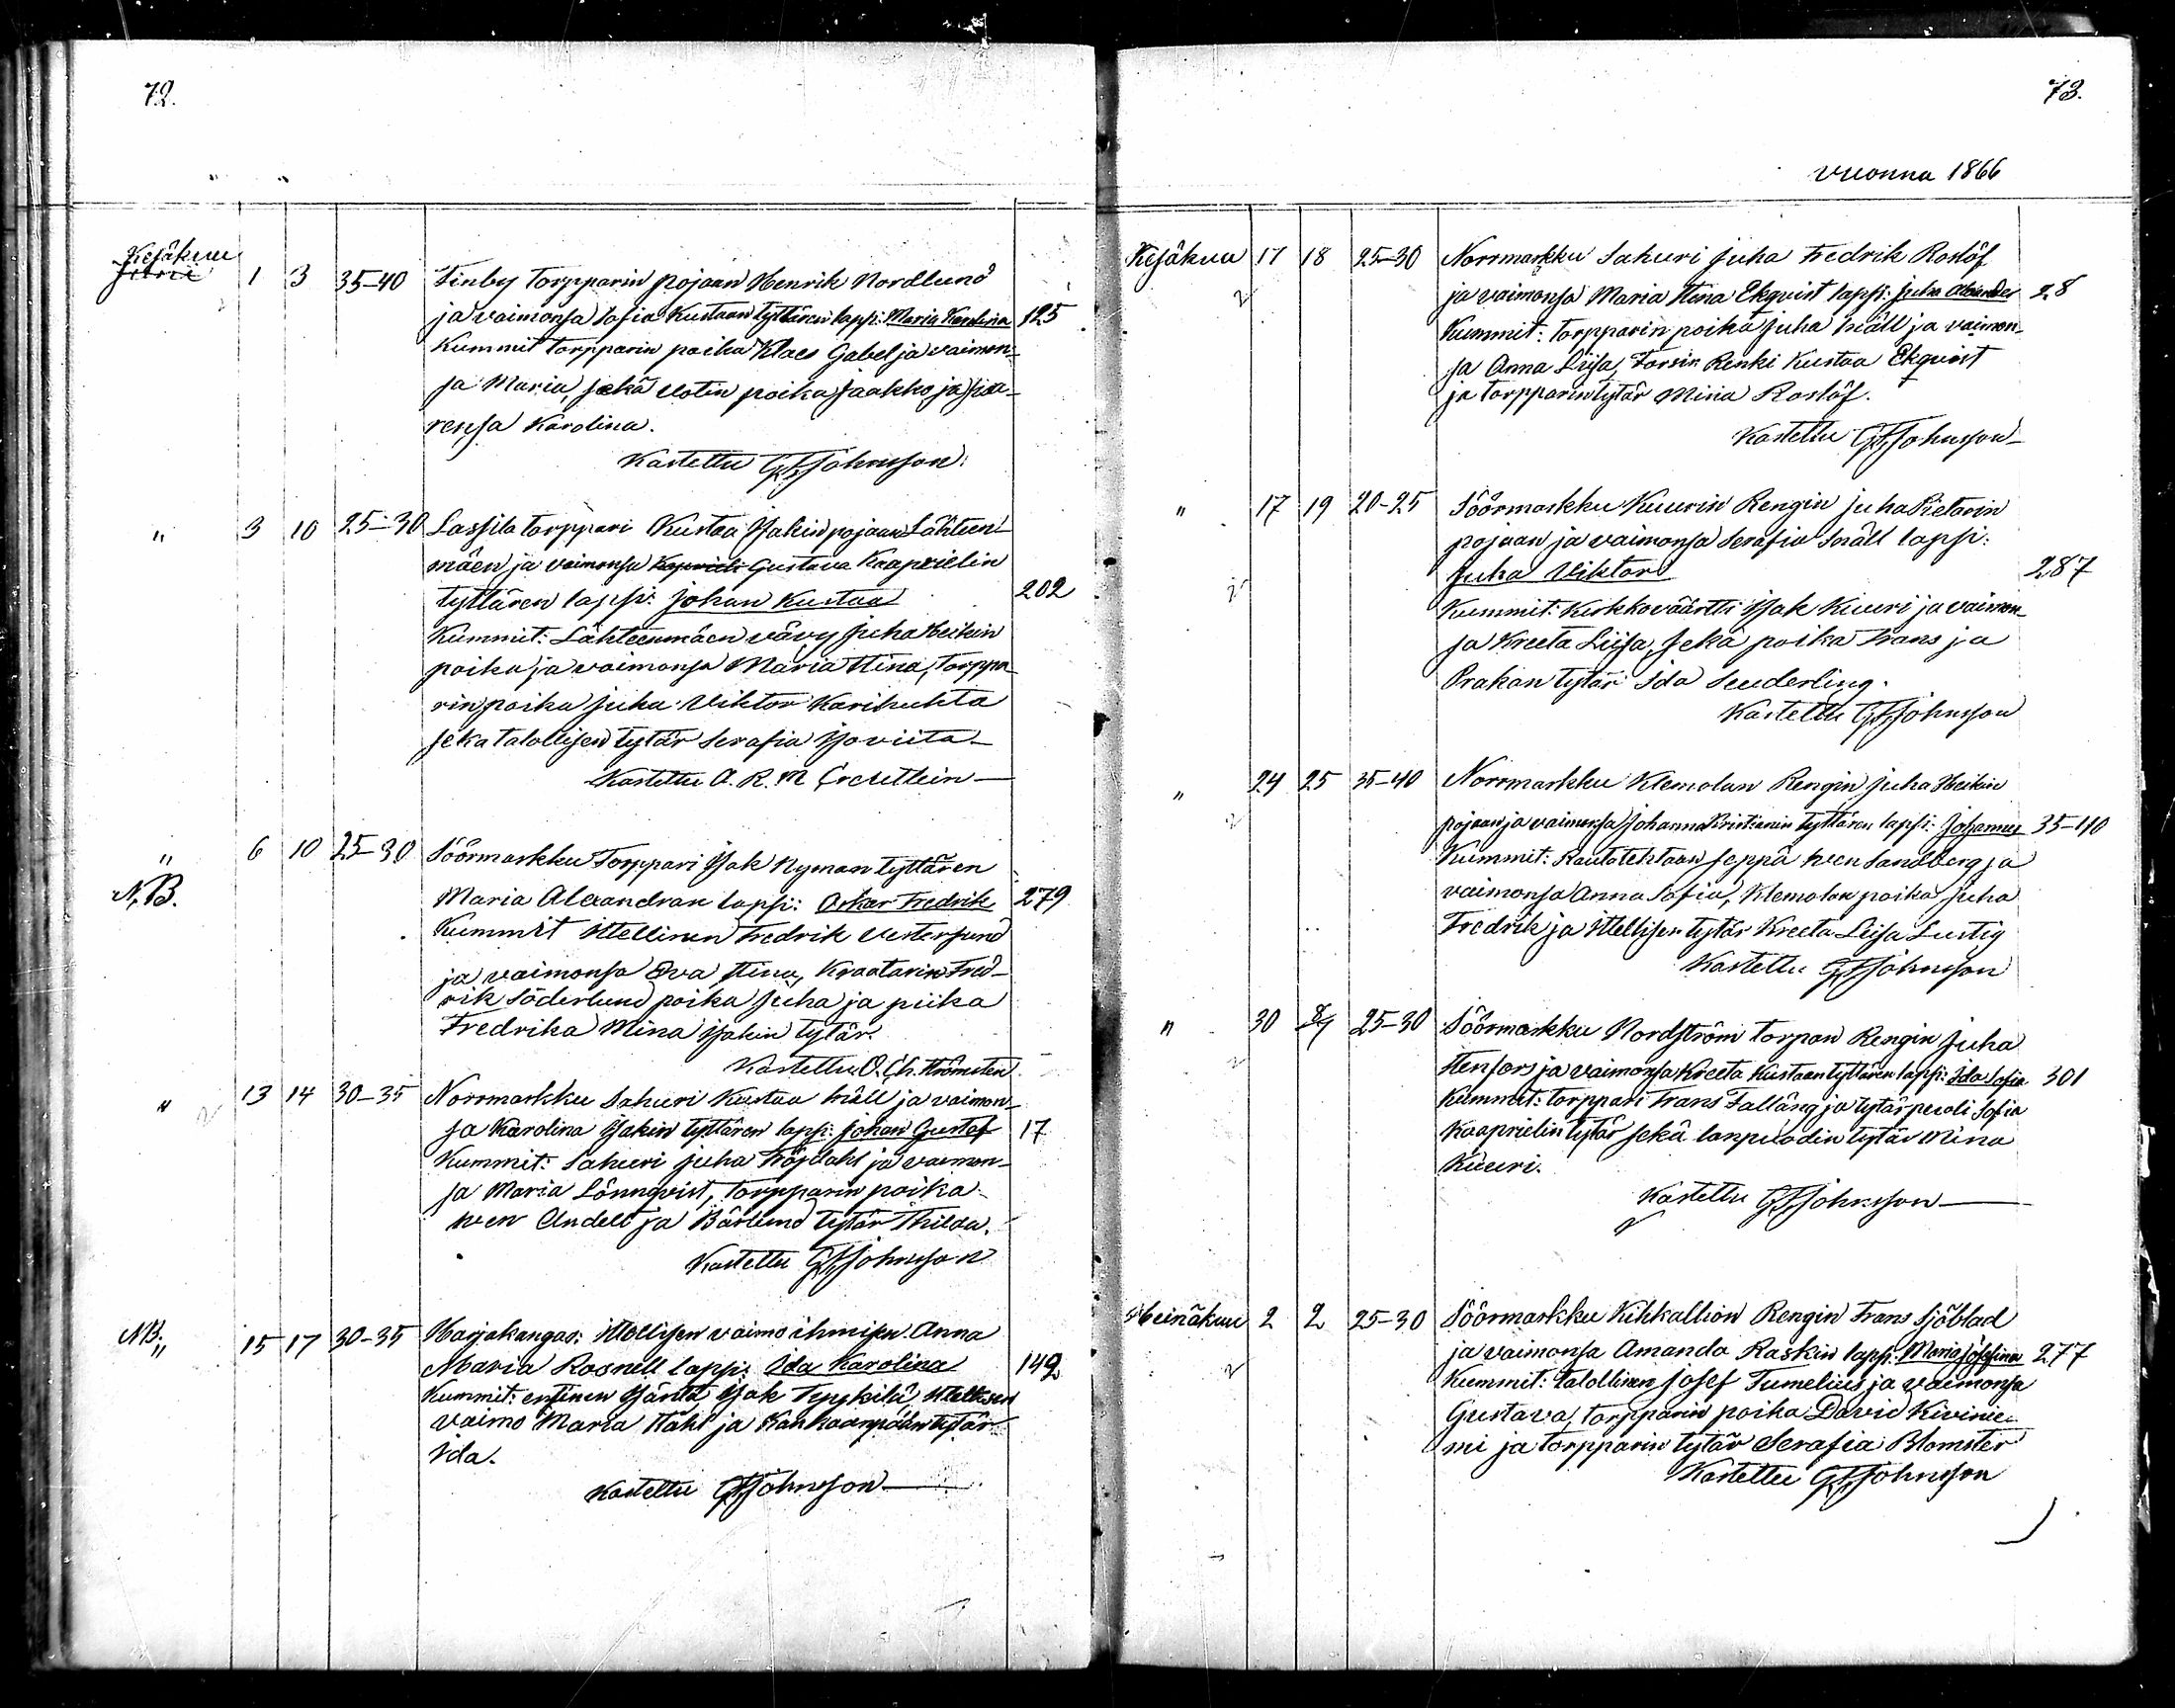 72.
Kesäkuu
1 3 35-40 Finby Torpparin pojaan Henrik Nordlund
ja vaimonsa Sofia Kustaan tyttären lapsi: Maria Karolina 125
Kummit Torpparin poika Klaes Gabel ja vaimon-
sa Maria, sekä poika Jaakko ja sisa-
rensa Karolina.
Kastettu GFJohnsson.
" 3 10 25-30 Lassila torppari Kustaa Isakin pojaan Lähteen-
mäen ja vaimonsa Gustava Kaaprielin
tyttären lapsi: Johan Kustaa 202
Kummit: Lähteenmäen vävy Juha Heikin
poika ja vaimonsa Maria Stina, Torppa-
rin poika Juha Viktor Karihuhta
seka talollisen tytär Serafia Isoviita
Kastettu A. R. M.
" 6 10 25-30 Söörmarkku Torppari Isak Nyman tyttären
N.B. Maria Alexandran lapsi: Oskar Fredrik 279
Kummit Itellinen Fredrik Vestersund
ja vaimonsa Eva Stina, Kraatarin Fred-
rik Söderlund poika Juha ja piika
Fredrika Mina Isakin tytär.
Kastettu O. Ch. Strömsten
" 13 14 30-35 Norrmarkku Sahuri Kustaa Snäll ja vaimon-
sa Karolina Isakin tyttären lapsi: Johan Gustaf 17
Kummit: Sahuri Juha Höjdahl ja vaimon-
sa Maria Lönnqvist, Torpparin poika
Sven Andell ja Bärlund tytär Thilda.
Kastettu GFJohnsson
NB. " 15 17 30-35 Harjakangas: Itellisen vaimo ihmisen Anna
Maria Rosnell lapsi: Ida Karolina 149
Kummit: entinen Isäntä Isak Tyykilä, Itellisen
vaimo Maria Ståhl ja Kankaanpään tytär
Ida.
Kastettu GFJohnsson
73.
vuonna 1866
Kesäkuu 17 18 25-30 Norrmarkku Sahuri Juha Fredrik Roslöf
ja vaimonsa Maria Stina Ekqvist lapsi: Juha Alexander 28
Kummit: Torpparin poika Juha Snäll ja vaimon-
sa Anna Liisa, Forsin Renki Kustaa Ekqvist
ja torpparin tytär Miina Roslöf.
Kastettu GFJohnsson
" 17 19 20-25 Söörmarkku Kuurin Rengin Juha Pietarin
pojaan ja vaimonsa Serafia Snäll lapsi:
Juha Viktor 287
Kummit: Kirkkoväärtti Isak Kuuri ja vaimon-
sa Kreeta Liisa, sekä poika Frans ja
Prakan tytär Ida Seuderling.
Kastettu GFJohnsson
" 24 25 35-40 Norrmarkku Klemolan Rengin Juha Heikin
pojaan ja vaimonsa Johanna Kristianin tyttären lapsi: Johannes 35-40
Kummit: Rautatehtaan seppä Sven Sandberg ja
vaimonsa Anna Sofia, Klemolan poika Juha
Fredrik ja Itellisen tytär Kreeta Liisa Lustig
Kastettu GFJohnsson
" 30 8/7 25-30 Söörmarkku Nordström torpan Rengin Juha
Stenfors ja vaimonsa Kreeta Kustaan tyttären lapsi: Ida Sofia 301
Kummit: torppari Frans Fallång ja tytärpuoli Sofia
Kaaprielin tytär sekä lanpuodin tytär Mina
Kuuri.
Kastettu GFJohnsson
Heinäkuu 2 2 25-30 Söörmarkku Kihkallion Rengin Frans Sjöblad
ja vaimonsa Amanda Raskin lapsi: Maria Josefina 277
Kummit: talollinen Josef Tumelius ja vaimonsa
Gustava, torpparin poika David Kivinie-
mi ja torpparin tytär Serafia Blomster
Kastettu GFJohnsson